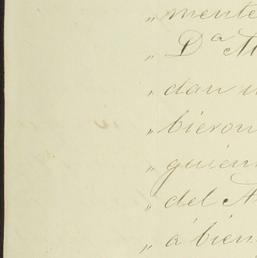 „ mente
„ Dª M
„ dan
„ bieron
„ quien
„ del
„ á bien